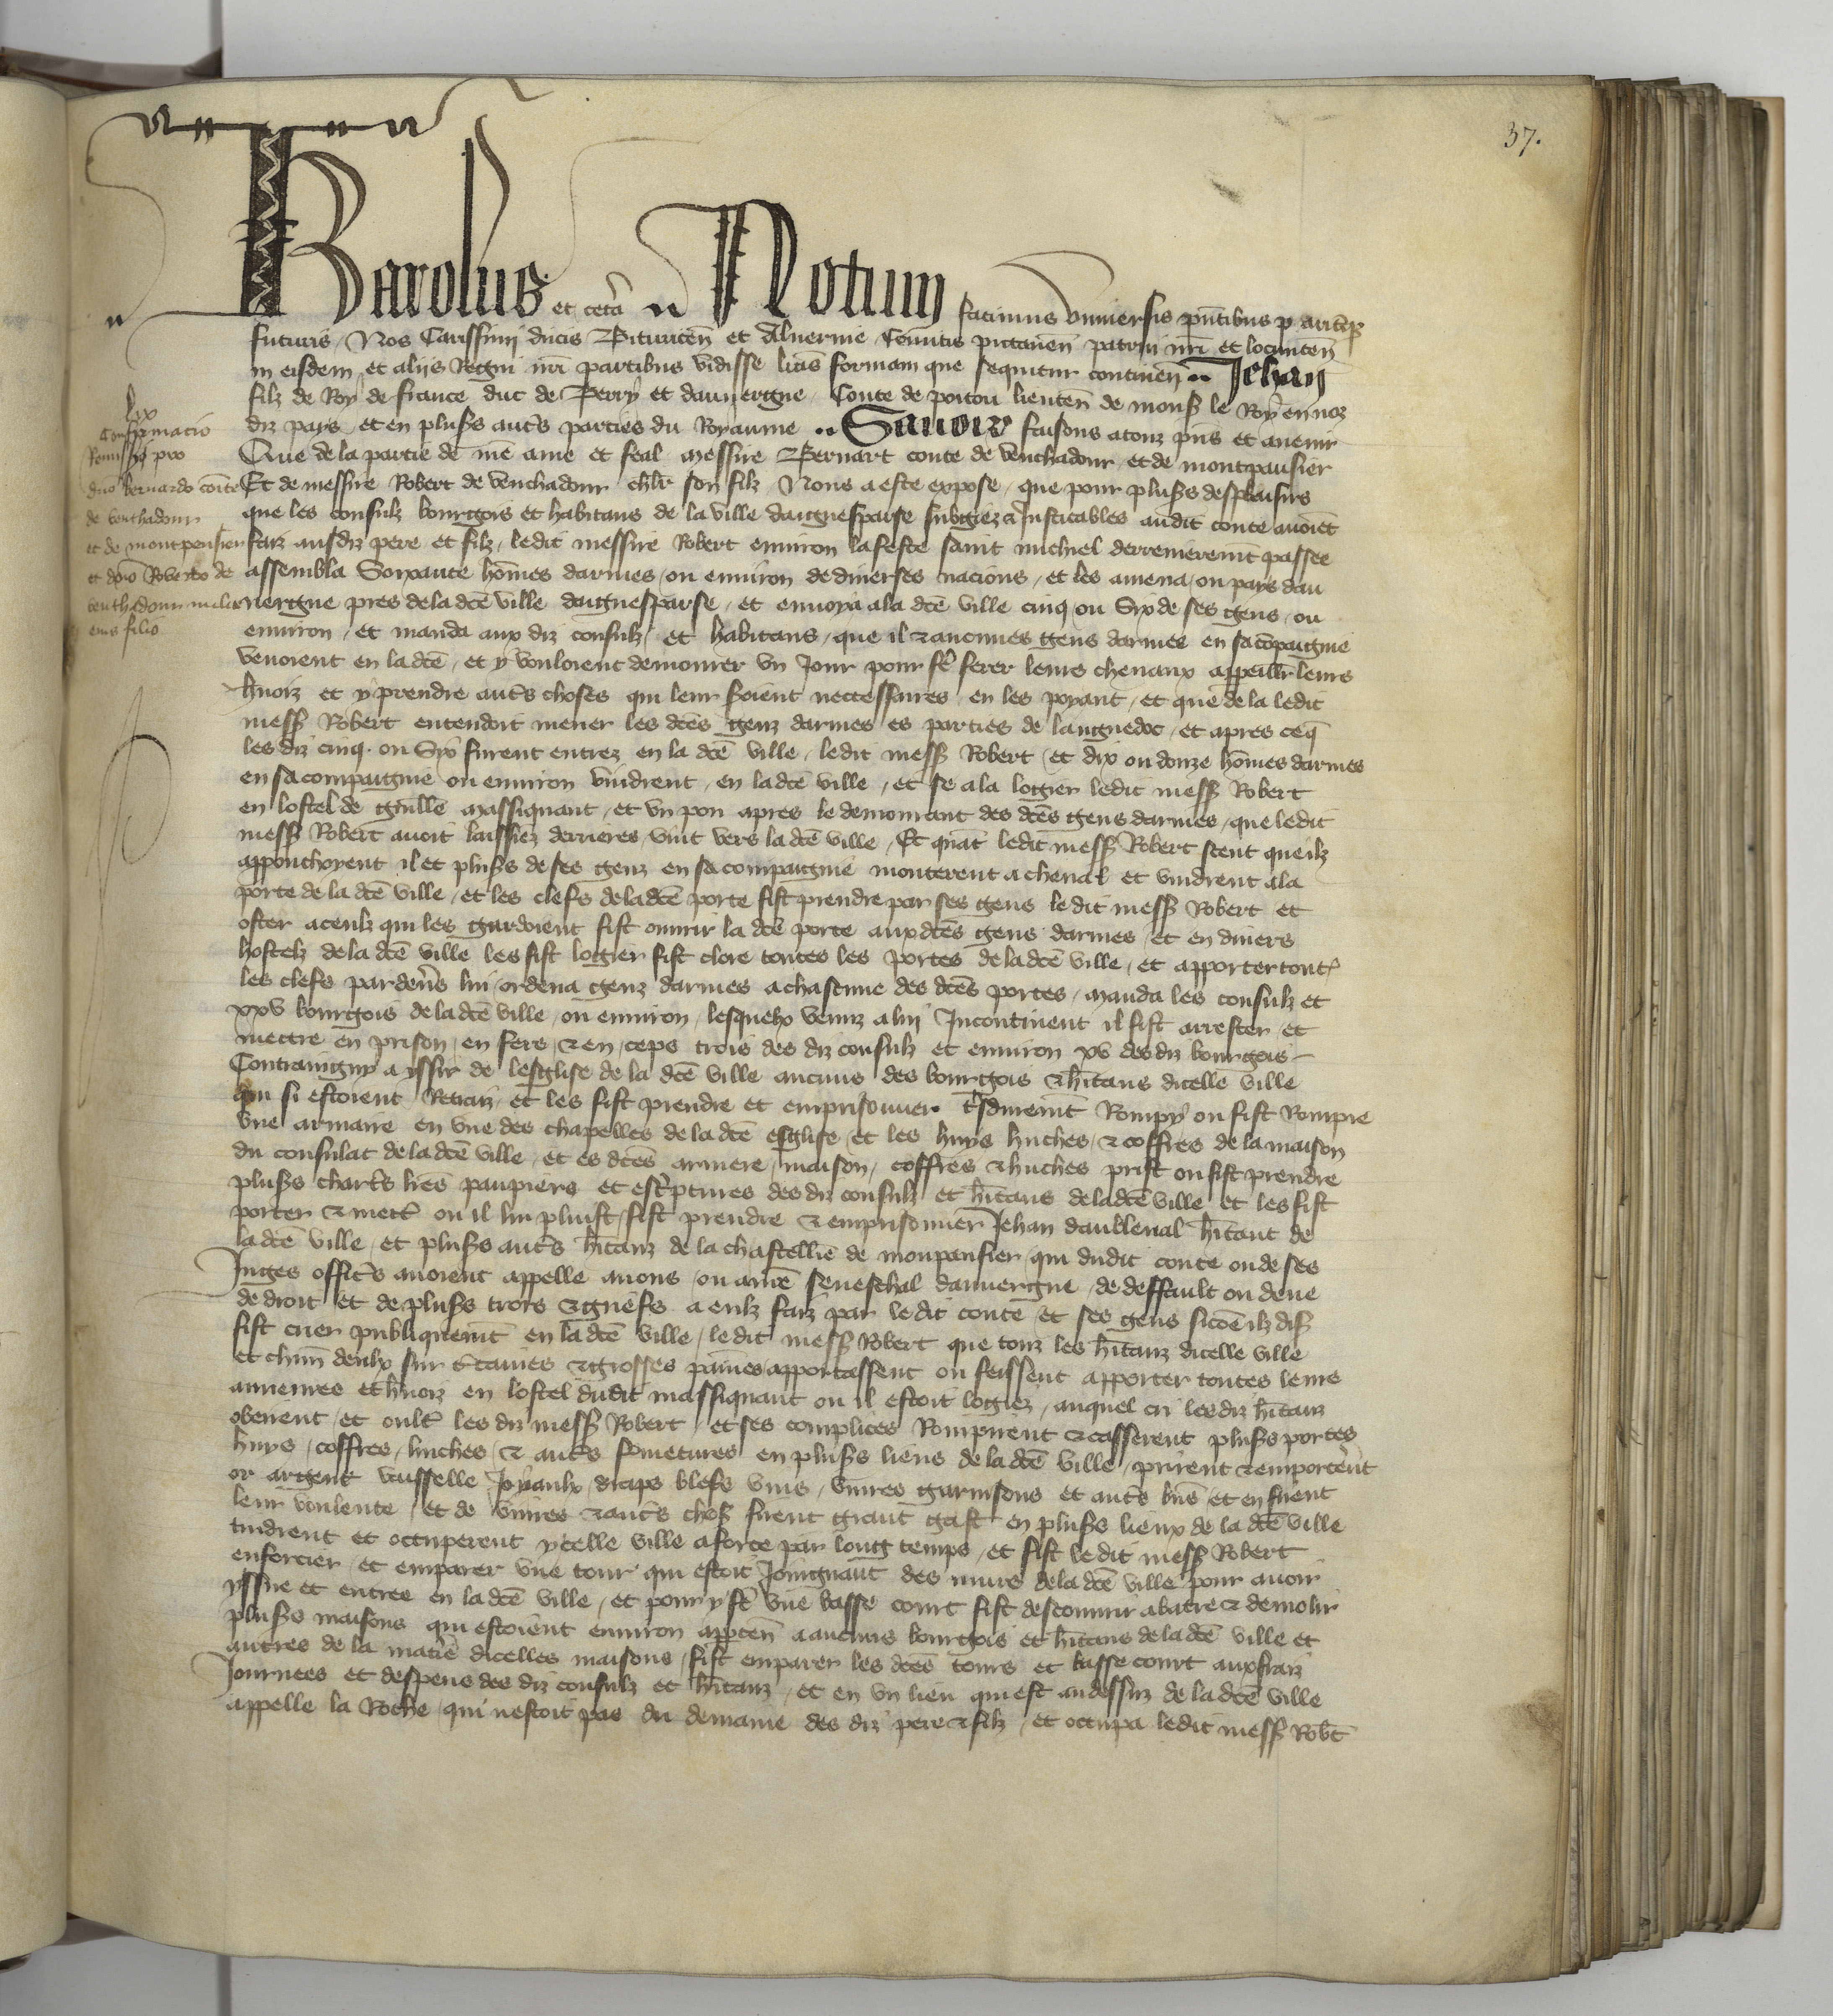 37.
Karolus et cetera Notum facimus universis pntibus et
futuris Nos Carissimi ducis Bituricen et Alvernie Comitis pictaven patrui nri et locumten
in eisdem et aliis Regni nri partibus vidisse lras formam que sequitur continen Jehan
filz de Roy de france duc de Berry et dauvergne Conte de poitou lieuten de mons le Roy en noz
diz pays et en plus auts parties du Royaume Savoir faisons a touz pns et avenir
Que de la partie de nre ame et feal messire Bernart conte de Venthadour et de montpansier
Et de messire Robert de Venthadour chlr son filz Nous a este expose que pour pluss desplaisirs
que les consulz bourgois et habitans de la ville daiguesparse subgiez et Justicables audit conte avoiet
faiz ausdiz pere et filz ledit messire Robert environ la feste saint michiel derrenieremt passee
assembla Soixante homes darmes ou environ de diverses nacions et les amena ou pays dau
vergne pres de la dce ville daiguesparse et envoya a la dce ville cinq ou Six de ses gens ou
environ et manda aux diz consulz et habitans que il et aucunes gens darmes en sa copaignie
venoient en la dce et y vouloient demourer un Jour pour fe ferer leurs chevaux appeillr leurs
hnoiz et y prendre auts choses qui leur soient neccessaires en les poyant et que de la ledit
mess Robert entendoit mener les dces genz darmes es parties de languedoc et apres ceq
les diz cinq ou Six furent entrez en la dce ville ledit mess Robert et dix ou douze homes darmes
en sa compaignie ou environ vindrent en la dce ville et se ala logier ledit mess Robert
en lostel de guille massiquant et un pou apres le demourant des dces gens darmes que ledit
mess Robert avoit laissiez derrieres vint vers la dce ville Et quat ledit mess Robert sceut que ilz
approuchoyent il et pluss de ses genz en sa compaignie monterent a cheval et vindrent a la
porte de la dce ville et les clefs de la dce porte fist prendre par ses gens ledit mess Robert et
oster a ceulz qui les gardoient fist ouvrir la dce porte aux dces gens darmes et en divers
hostelz de la dce ville les fist logier fist clore toutes les portes de la dce ville et apporter tout
les clefs pardevs lui ordena genz darmes a chascune des dces portes manda les consulz et
xxv bourgois de la dce ville ou environ lesquelx venuz a lui Incontinent il fist arrester et
mettre en prison en fers et en ceps trois des diz consulz et environ xv des diz bourgois
Contraigny a yssir de lesglise de la dce ville aucuns des bourgois et hitans dicelle ville
qui si estoient Retraiz et les fist prendre et emprisonner Rompy ou fist Rompre
une armaire en une des chapelles de la dce esglise et les huys huches et coffres de la maison
du consulat de la dce ville et es dces armere maison coffres et huches prist ou fist prendre
pluss charts lres paupiers et escriptures des diz consulz et hitans de la dce ville et les fist
porter et mett ou il lui pluist fist prendre et emprisonner Jehan daubleval hitant de
la dce ville et pluss auts hitanz de la chastellie de monpansier qui dudit conte ou de ses
Juges offics avoient appelle a nous ou a nre seneschal dauvergne de deffault ou devee
de droit et de pluss tors et griefs a eulz faiz par le dit conte et ses gens sicoe ilz dis
fist crier publiquemt en la dce ville ledit mess Robert que touz les hitanz dicelle ville
et chun deulx sur ctaines et grosses paines apportassent ou feissent apporter toutes leurs
armeures et hnoiz en lostel dudit massiquant ou il estoit logiez auquel cri les diz hitanz
obeirent et oult les diz mess Robert et ses complices Rompirent et casserent pluss portes
huys coffres huches et auts fermetures en pluss lieus de la dce ville prirent et emportert
or argent vaisselle Joyaulx draps blefs vins vivres garnisons et auts bns et en firent
leur voulente et de vivres et auts chos firent grant gast en pluss lieux de la dce ville
tindrent et occuperent ycelle ville a force par long temps et fist ledit mess Robert
enforcier et emparer une tour qui estoit Joingnant des murs de la dce ville pour avoir
yssue et entree en la dce ville et pour y fe une basse court fist descouvrir abatre et demolir
pluss maisons qui estoient environ apparten a aucuns bourgois et hitans de la dce ville et
autres de la matie dicelles maisons fist emparer les dces tours et basse court aux fraiz
Journees et despens des diz consulz et hitanz et en un lieu qui est au dessuz de la dce ville
appelle la Roche qui nestoit pas du demaine des diz pere et filz et occupa ledit mess Robt
lix
Confirmacio
Remissis pro
dno bernardo comite
de benthadour
et de montpensier
et dno Roberto de
benthedour milite
eius filio